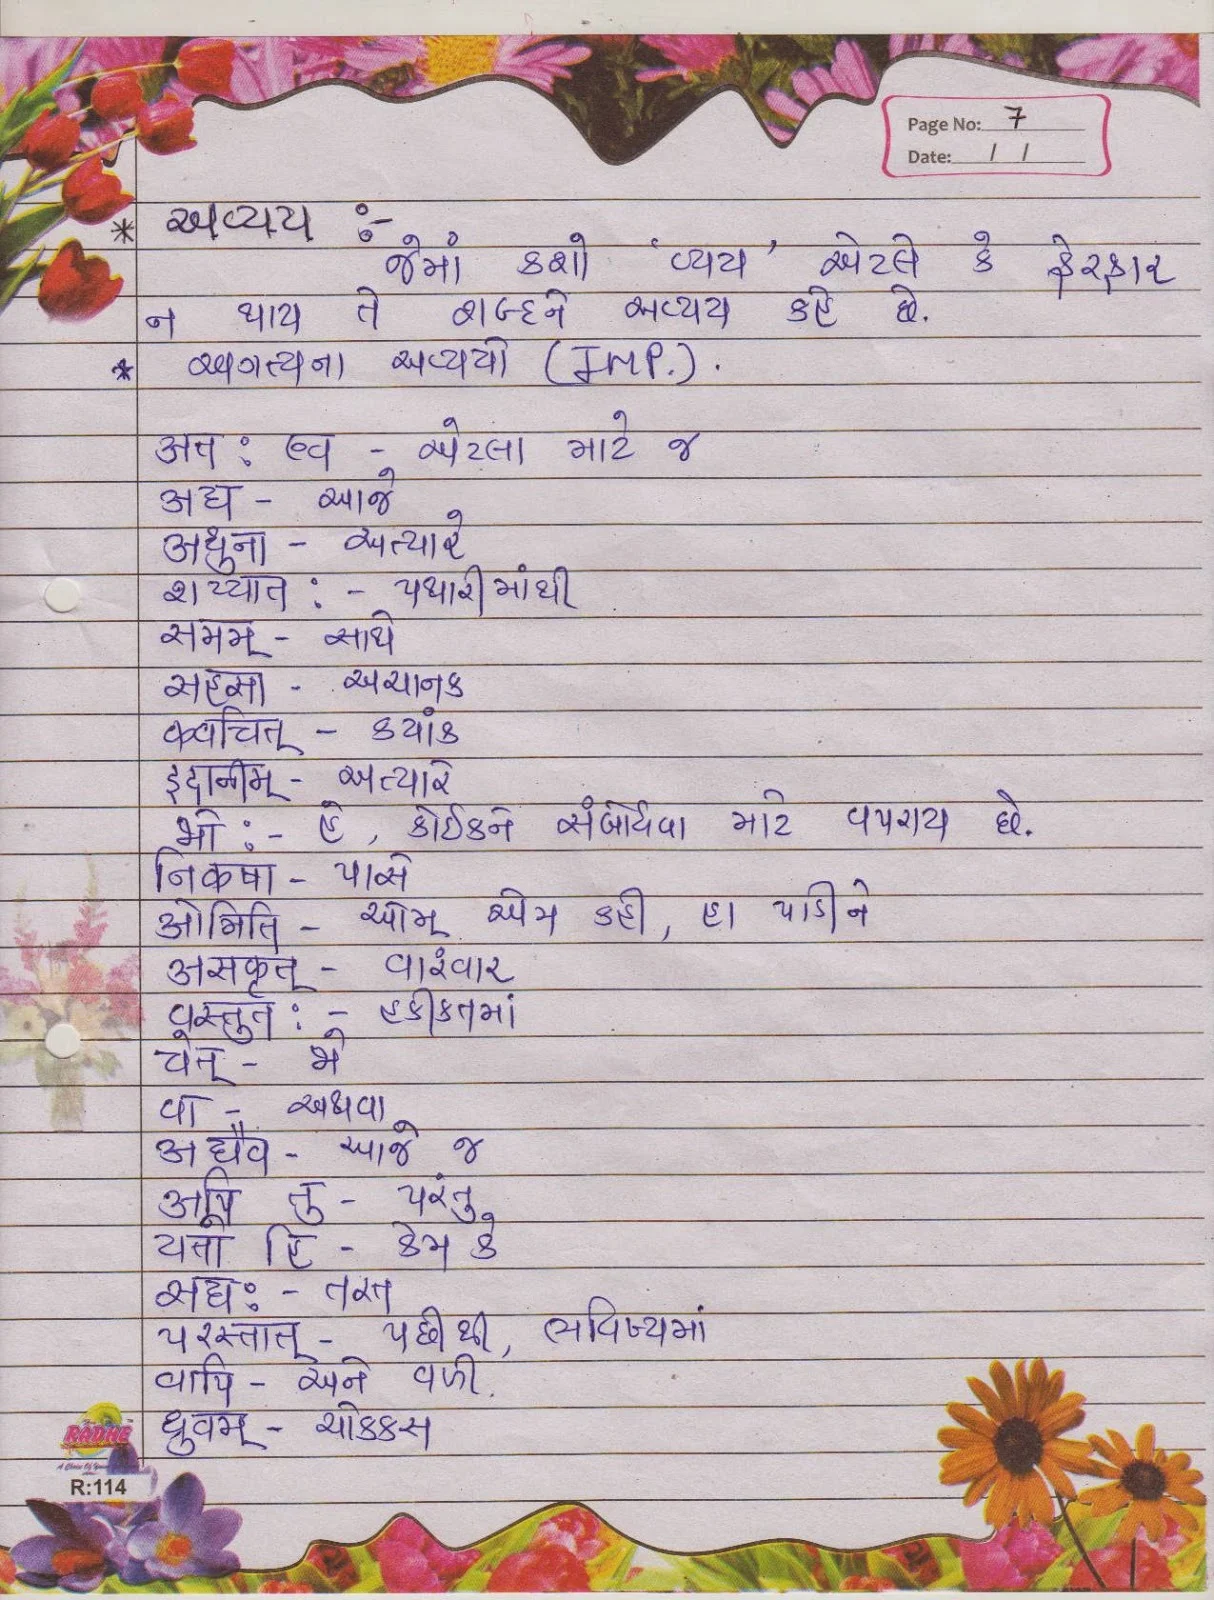 Page No: 7
Date: / /
* અવ્યય :-
જેમાં કશો 'વ્યય' એટલે કે ફેરફાર
ન થાય તે શબ્દને અવ્યય કહે છે.
* અગત્યના અવ્યયો (IMP.).
अत: एव - એટલા માટે જ
अद्य - આજે
अधुना - અત્યારે
शय्यात: - પથારીમાંથી
समम् - સાથે
सहसा - અચાનક
क्वचित् - ક્યાંક
इदानीम् - અત્યારે
भो: - હે, કોઈકને સંબોધવા માટે વપરાય છે.
निकषा - પાસે
ओमिति - ઓમ્ એમ કહી, હા પાડીને
असकृत् - વારંવાર
वस्तुत: - હકીકતમાં
चेत् - જો
वा - અથવા
अद्यैव - આજે જ
अपि तु - પરંતુ
यतो हि - કેમ કે
सद्य: - તરત
परस्तात् - પછીથી, ભવિષ્યમાં
वापि - અને વળી.
ध्रुवम् - ચોક્કસ
RADHE
R:114